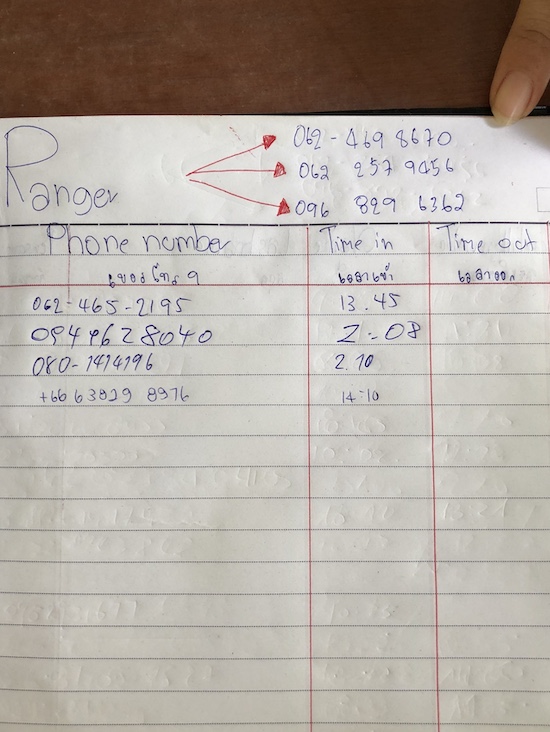 Ranger
062-469 8670
062 257 9456
096 829 6362
Phone number Time in Time out
เบอร์โทร เวลาเข้า เวลาออก
062-465-2195 13.45
0949628040 2:08
080-1414196 2.10
+66 63829 8976 14:10